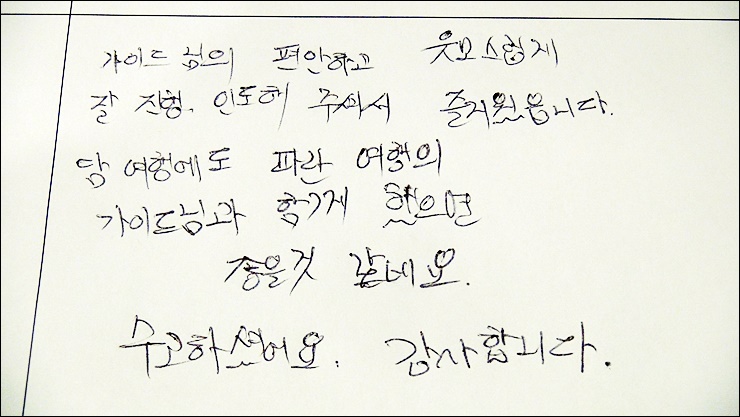 가이드님의 편안하고 웃모스럽게
잘 진행, 인도해 주셔서 즐거웠읍니다.
담 여행에도 파란 여행의
가이드님과 함께 했으면
좋을것 같네요.
수고하셨어요. 감사합니다.